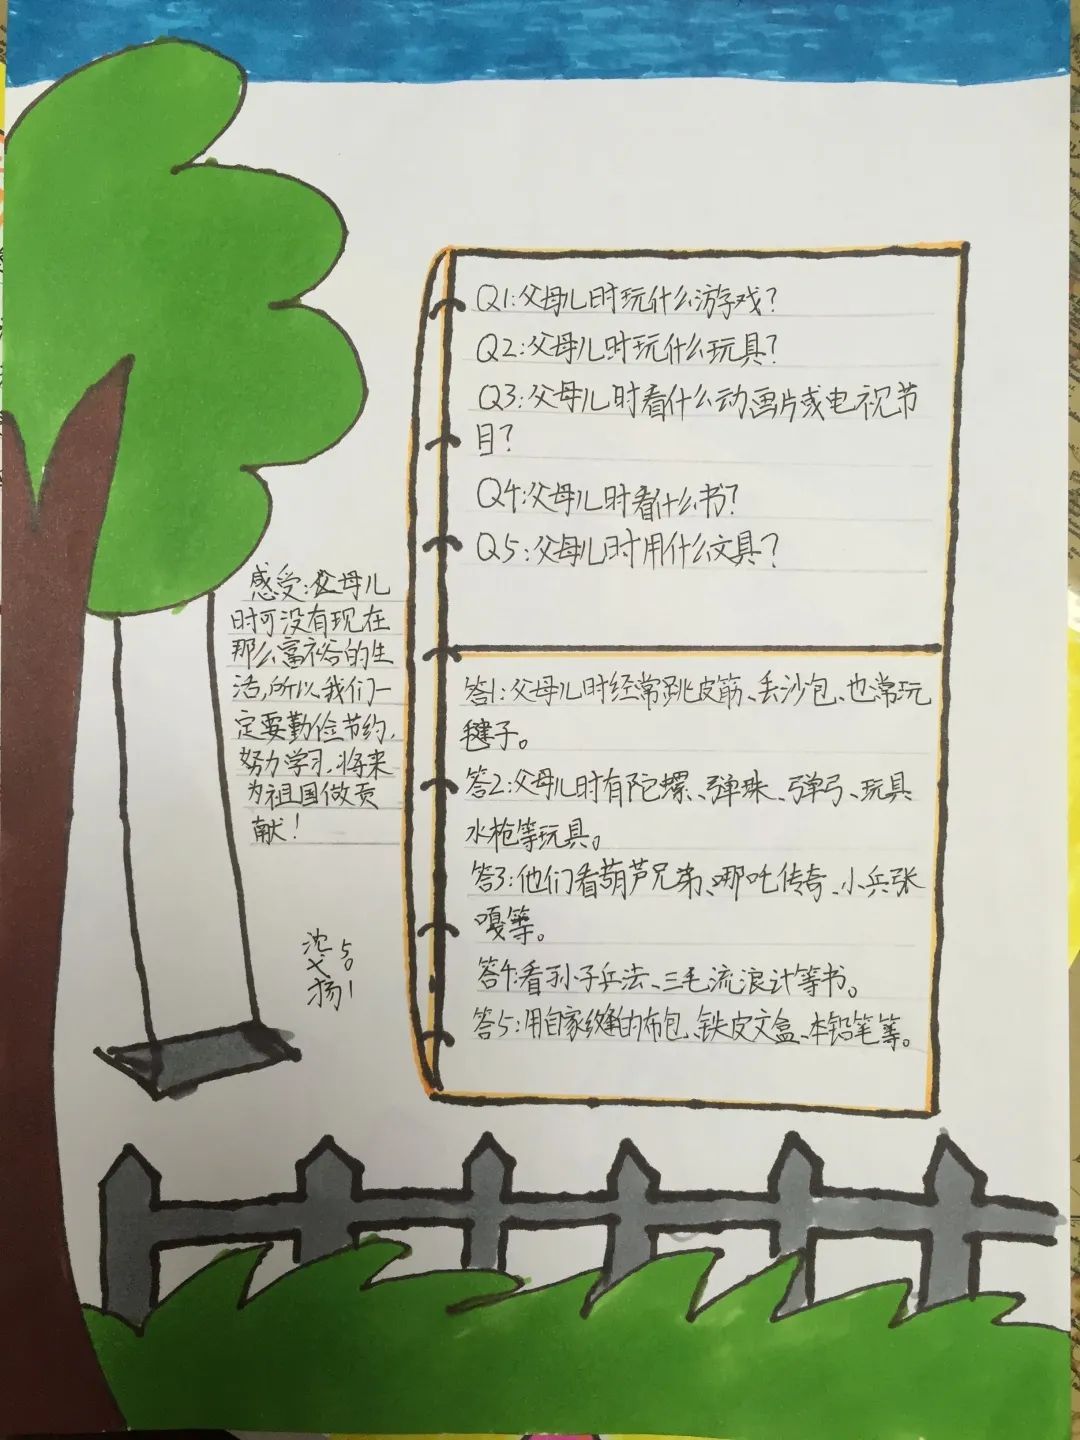 Q1:父母儿时玩什么游戏？
Q2:父母儿时玩什么玩具？
Q3:父母儿时看什么动画片或电视节
目？
Q4:父母儿时看什么书？
Q5:父母儿时用什么文具？
答1:父母儿时经常跳皮筋、丢沙包、也常玩
毽子。
答2:父母儿时有陀螺、弹珠、弹弓、玩具
水枪等玩具。
答3:他们看葫芦兄弟、哪吒传奇、小兵张
嘎等。
答4:看孙子兵法、三毛流浪计等书。
答5:用自家缝的布包、铁皮文盒、本铅笔等。
感受:父母儿
时可没有现在
那么富裕的生
活,所以,我们一
定要勤俭节约,
努力学习,将来
为祖国做贡
献！
501
沈弋扬